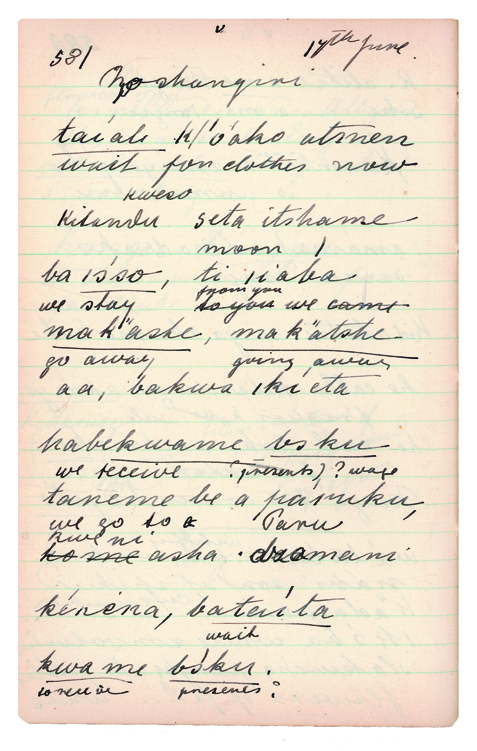 531
17th June
Hoshangiri
taiali k/'o'ako atmen
wait for clothes now
kweso
kitandu seta itshame
moon 1
ba is'so, ti jiaba
from you
we stay to you we came
mak"ashe, mak"atshe
go away going away
aa, bakwa iki eta
habekwame bsku
we receive (presents)? wage
taneme be a paruku,
we go to a Paru
kweni
ko me asha. dzomani
kenena, bataita
wait
kwa me b's'ku.
to receive presents?